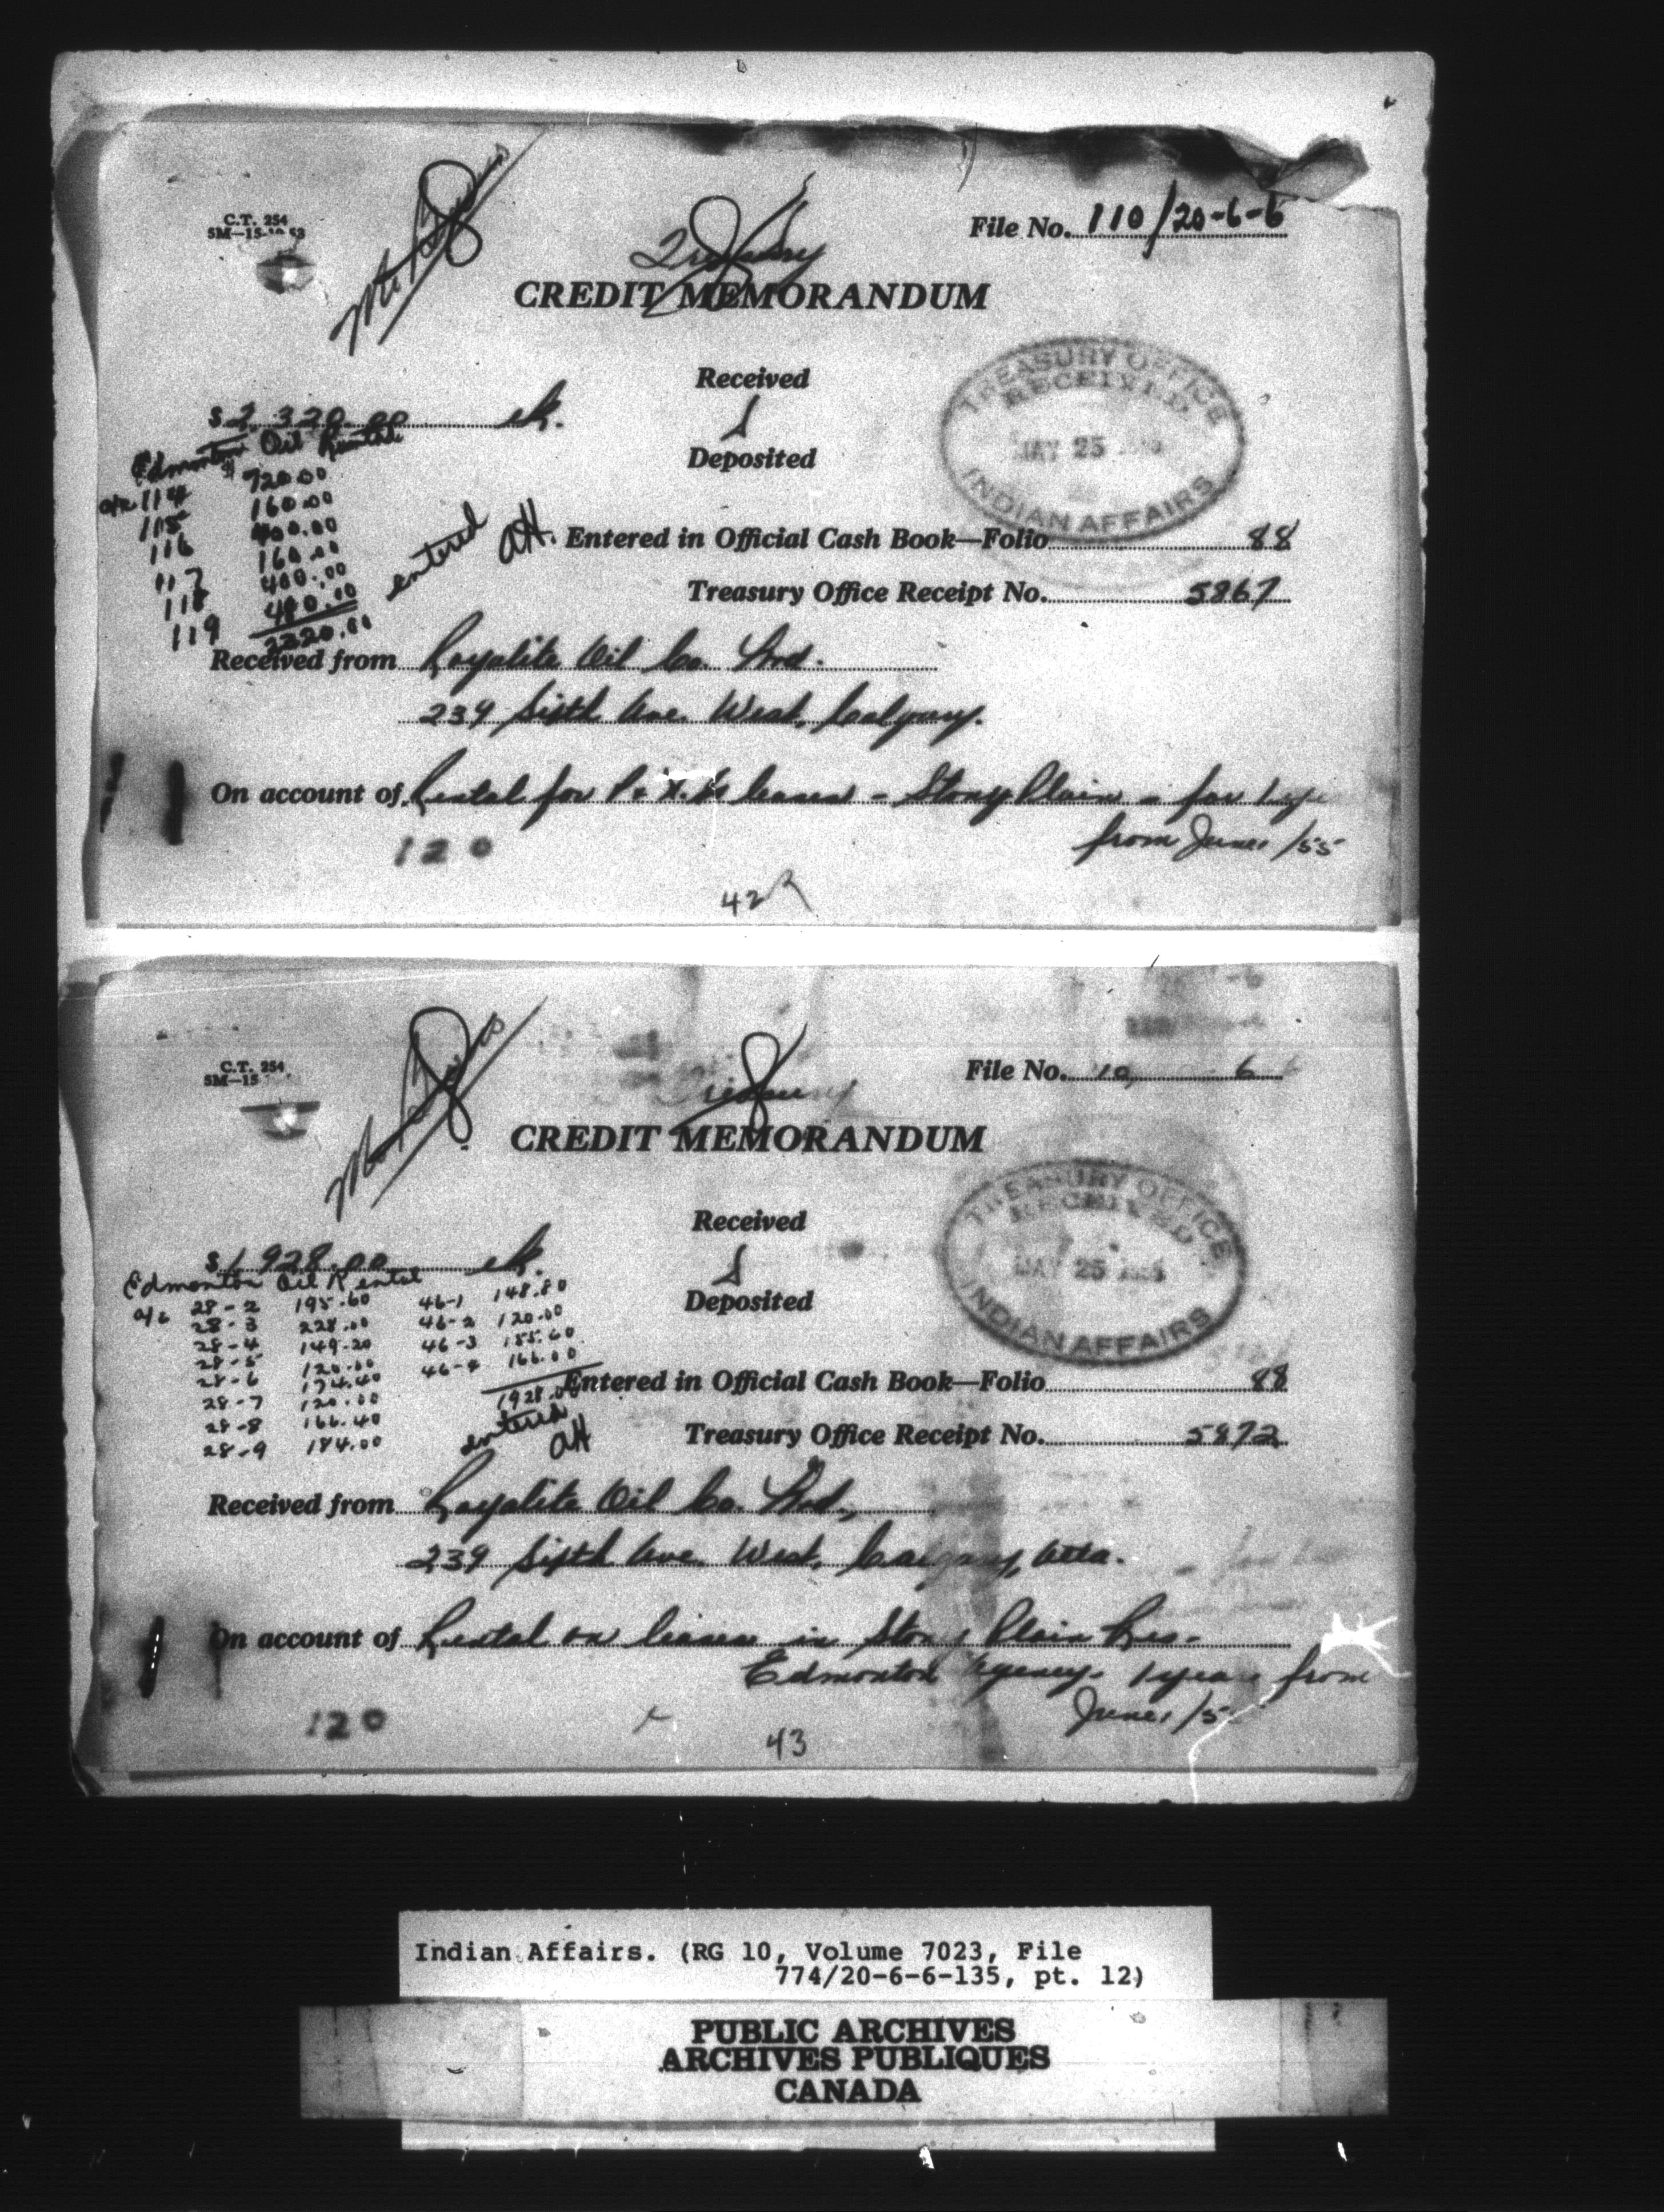 C.T. 254
File No. 110/20-6-6
Treasury
CREDIT MEMORANDUM
TREASURY OFFICE
RECEIVED
MAY 25
INDIAN AFFAIRS
Received
$2,320.00 ck.
Deposited
Edmonton Oil Rentals
a/c 114 $720.00
115 160.00
116 400.00
117 160.00
118 400.00
119 480.00
2320.00
entered AH.
Entered in Official Cash Book—Folio 88
Treasury Office Receipt No. 5867
Received from Royalite Oil Co. Ltd.
239 Sixth Ave. West, Calgary.
On account of Rental for P. & N. G. leases - Stony Plain - for 1 
from June 1/55
120
42
C.T. 254
5M—15
File No. 10 6
Treasury
CREDIT MEMORANDUM
TREASURY OFFICE
RECEIVED
MAY 25
INDIAN AFFAIRS
Received
$1,928.00 ck.
Deposited
Edmonton Oil Rental
a/c 28-2 195.60 46-1 148.80
28-3 228.00 46-2 120.00
28-4 149.20 46-3 155.60
28-5 120.00 46-4 166.00
28-6 174.40
28-7 120.00 1928.00
28-8 166.40
28-9 184.00
entered
AH
Entered in Official Cash Book—Folio 88
Treasury Office Receipt No. 5872
Received from Royalite Oil Co. Ltd.,
239 Sixth Ave. West, Calgary, Alta.
On account of Rental on leases in Stony Plain Res.
Edmonton Agency. 1 year from
June 1/5
120
43
Indian Affairs. (RG 10, Volume 7023, File
774/20-6-6-135, pt. 12)
PUBLIC ARCHIVES
ARCHIVES PUBLIQUES
CANADA